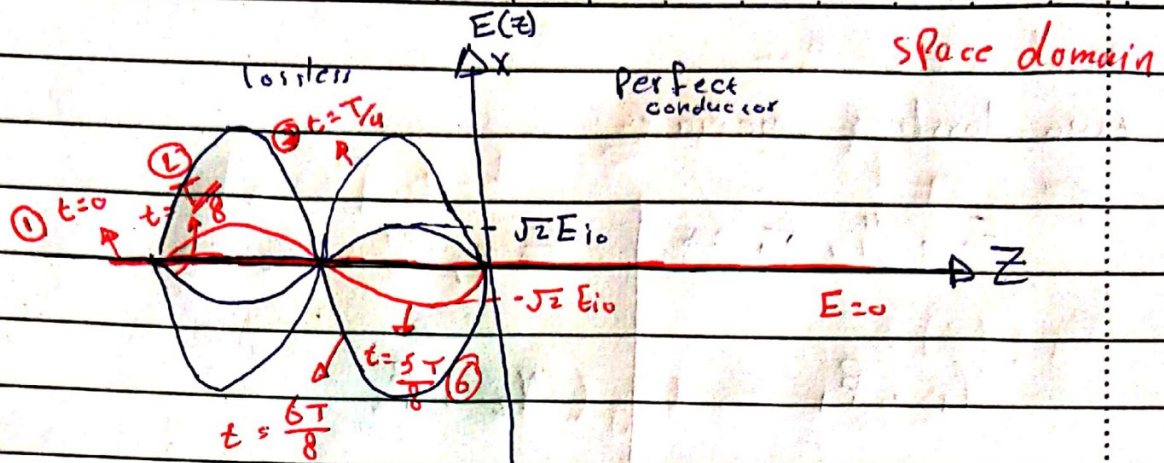 E(z)
space domain
X
lossless
perfect
conductor
③ t=T/4
②
t=T/8
① t=0
√2 Eio
Z
-√2 Eio
E=0
t=5T/8 ⑥
t=6T/8